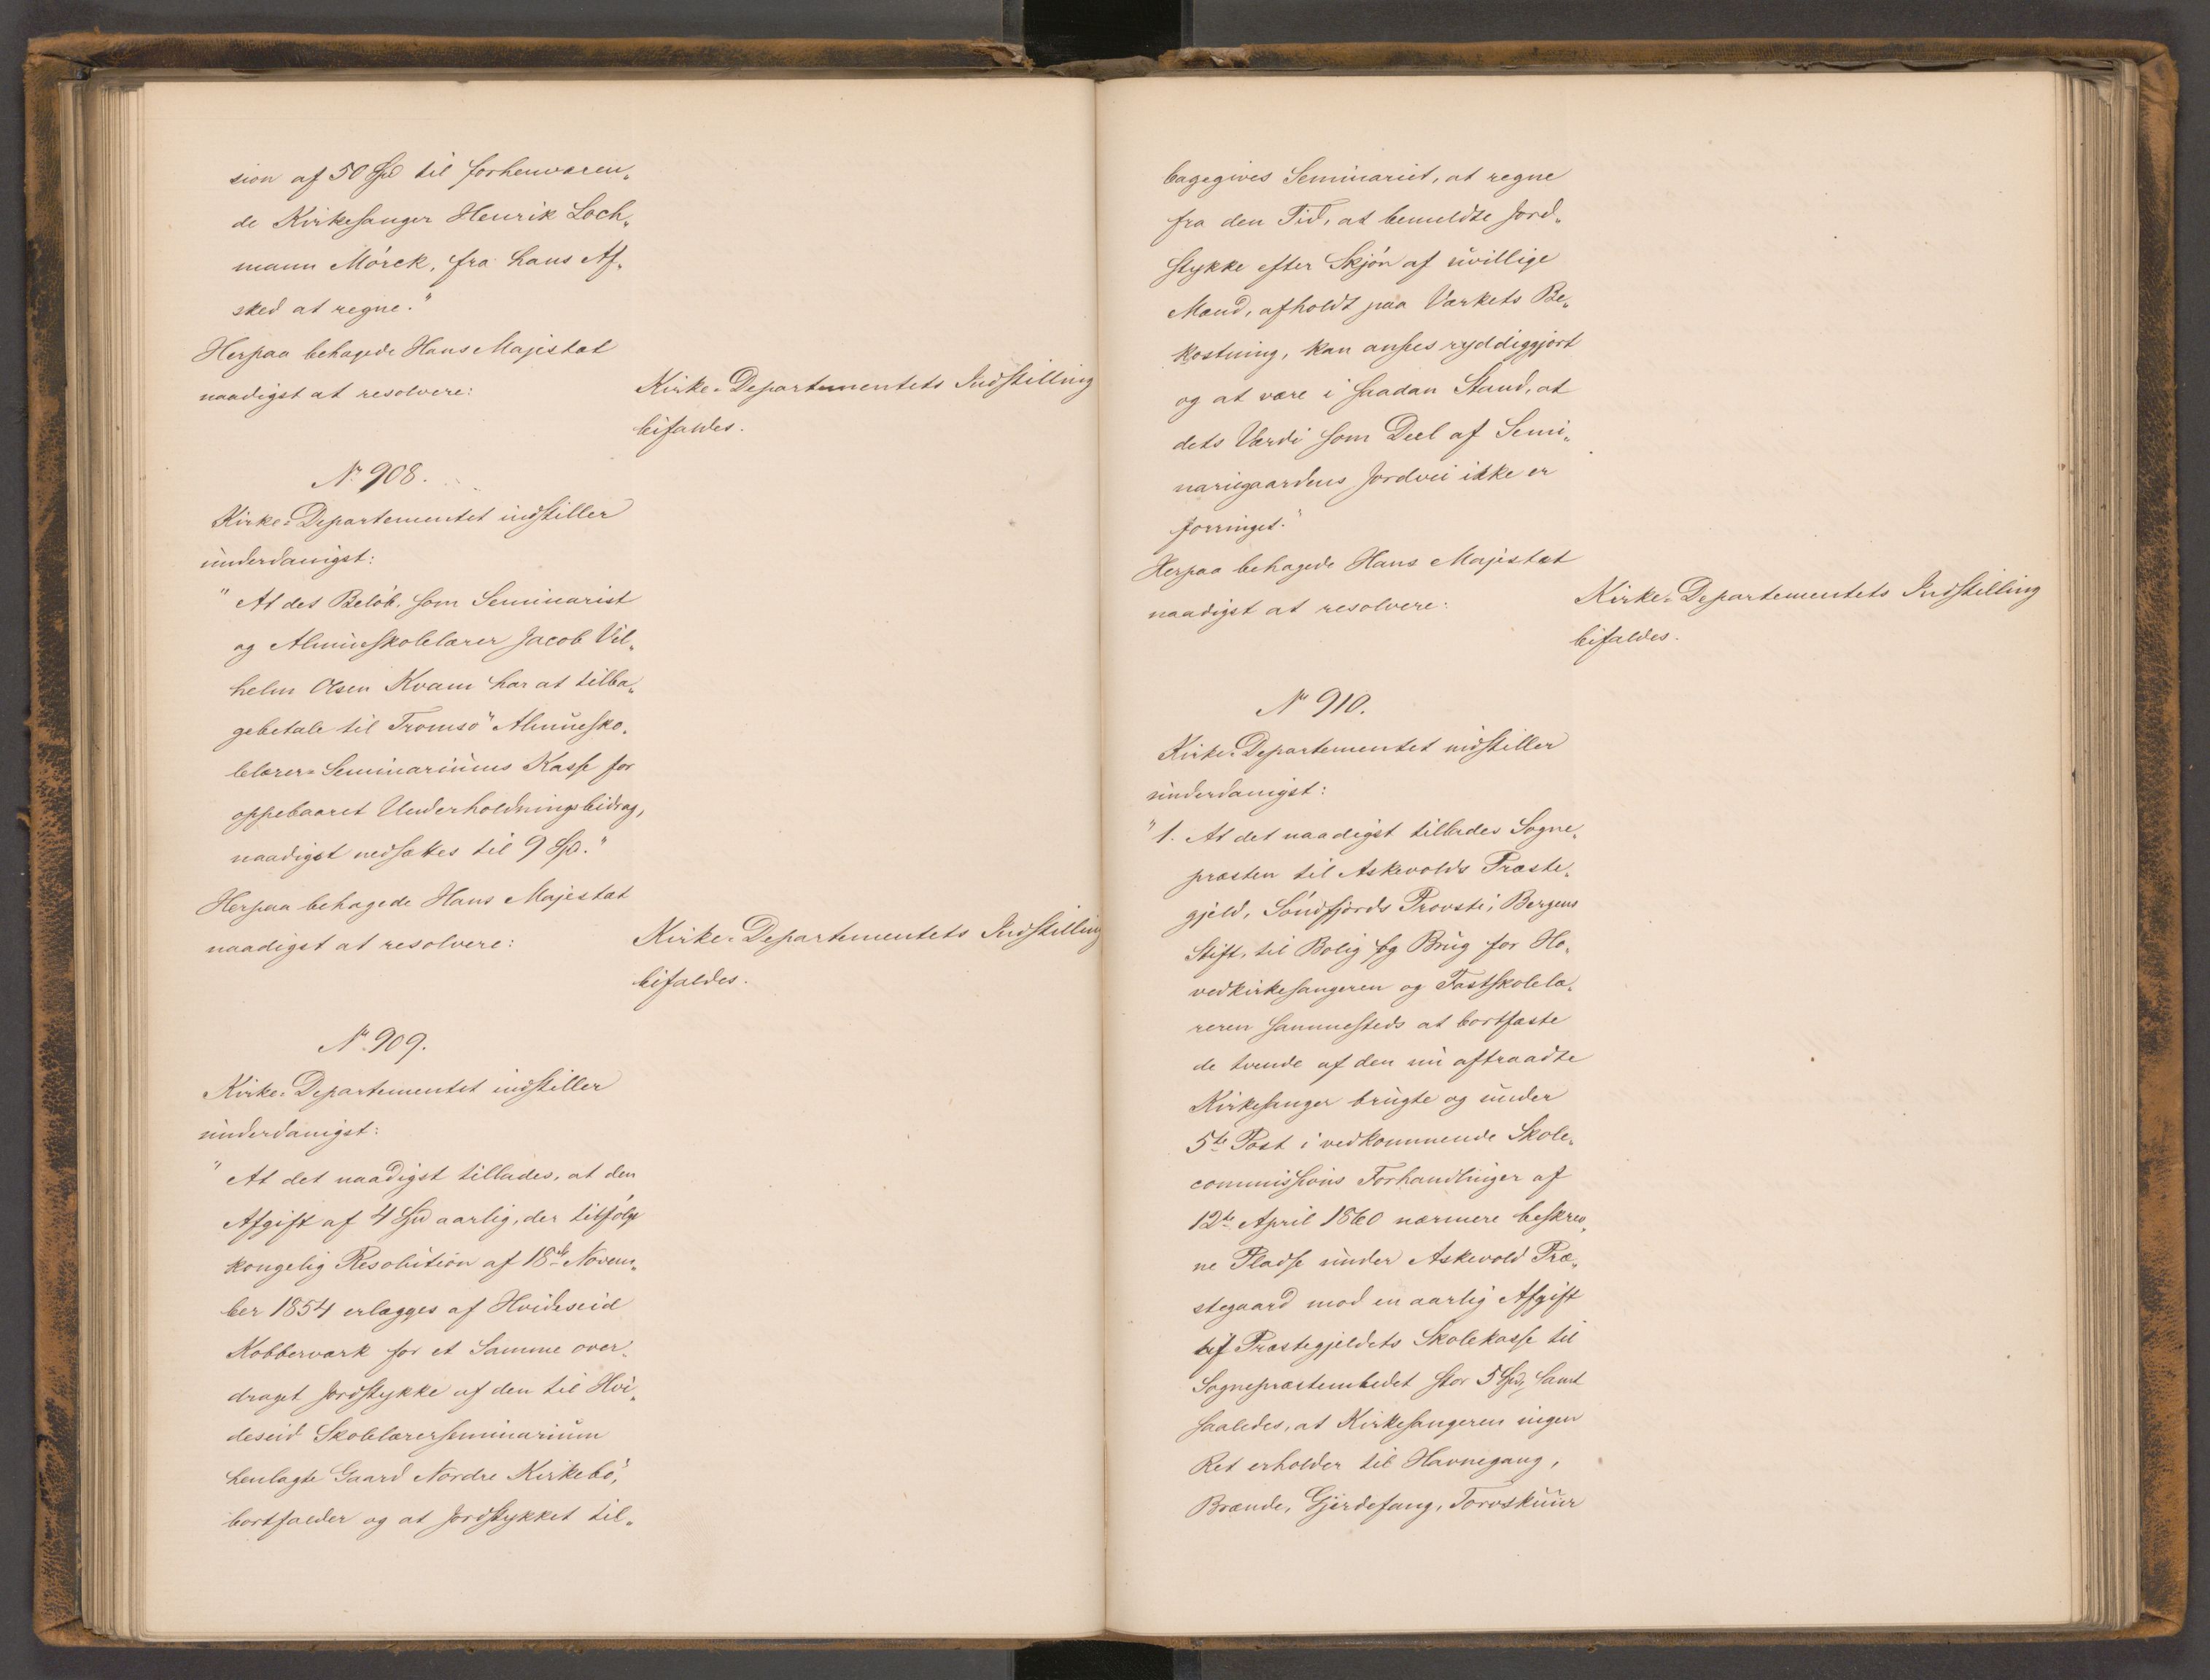 sion af 50 Spd til forhenværen„
de Kirkesanger Henrik Loch„
mann Mörck, fra hans Af„
sked at regne."
Herpaa behagede Hans Majestæt
naadigst at resolvere:
Kirke-Departementets Indstilling
bifaldes.
Nr 908.
Kirke-Departementet indstiller
underdanigst:
"At det Belöb, som Seminarist
og Almueskolelærer Jacob Vil„
helm Olsen Kvam har at tilba„
gebetale til Tromsö Almuesko„
lelærer-Seminariums Kasse for
oppebaaret Underholdningsbidrag,
naadigst nedsættes til 9 Spd."
Herpaa behagede Hans Majestæt
naadigst at resolvere:
Kirke-Departementets Indstilling
bifaldes.
Nr 909.
Kirke-Departementet indstiller
underdanigst:
"At det naadigst tillades, at den
Afgift af 4 Spd aarlig, der tilfölge
kongelig Resolution af 18de Novem„
ber 1854 erlægges af Hvideseid
Kobberværk for et Samme over„
draget Jordstykke af den til Hvi„
deseid Skolelærerseminarium
henlagte Gaard Nordre Kirkebö,
bortfalder og at Jordstykket til„
bagegives Seminariet, at regne
fra den Tid, at bemeldte Jord„
stykke efter Skjön af uvillige
Mænd, afholdt paa Værkets Be„
kostning, kan ansees ryddiggjort
og at være i saadan Stand, at
dets Værdi som Deel af Semi„
nariegaardens Jordvei ikke er
forringet."
Herpaa behagede Hans Majestæt
naadigst at resolvere:
Kirke-Departementets Indstilling
bifaldes.
Nr 910.
Kirke-Departementet indstiller
underdanigst:
"1. At det naadigst tillades Sogne„
præsten til Askevolds Præste„
gjeld, Söndfjords Provsti, Bergens
Stift, til Bolig og Brug for Ho„
vedkirkesangeren og Fastskolelæ„
reren sammesteds at bortfæste
de tvende af den nu aftraadte
Kirkesanger brugte og under
5te Post i vedkommende Skole„
commissions Forhandlinger af
12te April 1860 nærmere beskrev„
ne Pladse under Askevold Præ„
stegaard mod en aarlig Afgift
af Præstegjeldets Skolekasse til
Sognepræstembedet stor 5 Spd, samt
saaledes, at Kirkesangeren ingen
Ret erholder til Havnegang,
Brænde, Gjerdefang, Torvskuur